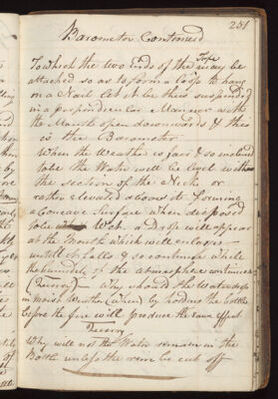 281
Barometer Continued
To which the two Ends of the Tape may be
attached so as to form a Loop to hang
on a Nail let it be then suspended
in a perpendicular Manner with
the Mouth open downwards & this
is the Barometer
When the Weather is fair & so inclined
to be the Water will be level within
the section of the Neck or
rather elevated above it & forming
a Concave Surface when disposed
to be Wet a Drop will appear
at the Mouth which will enlarge
untill it falls & so continue while
the humidity of the atmosphere continues
(Querry) Why should the Waterdrops
in moist Weather (When) by holding the bottle
before the fire will produce the same effect
Querry
Why will not the Water remain in the
Bottle unless the rim be cut off